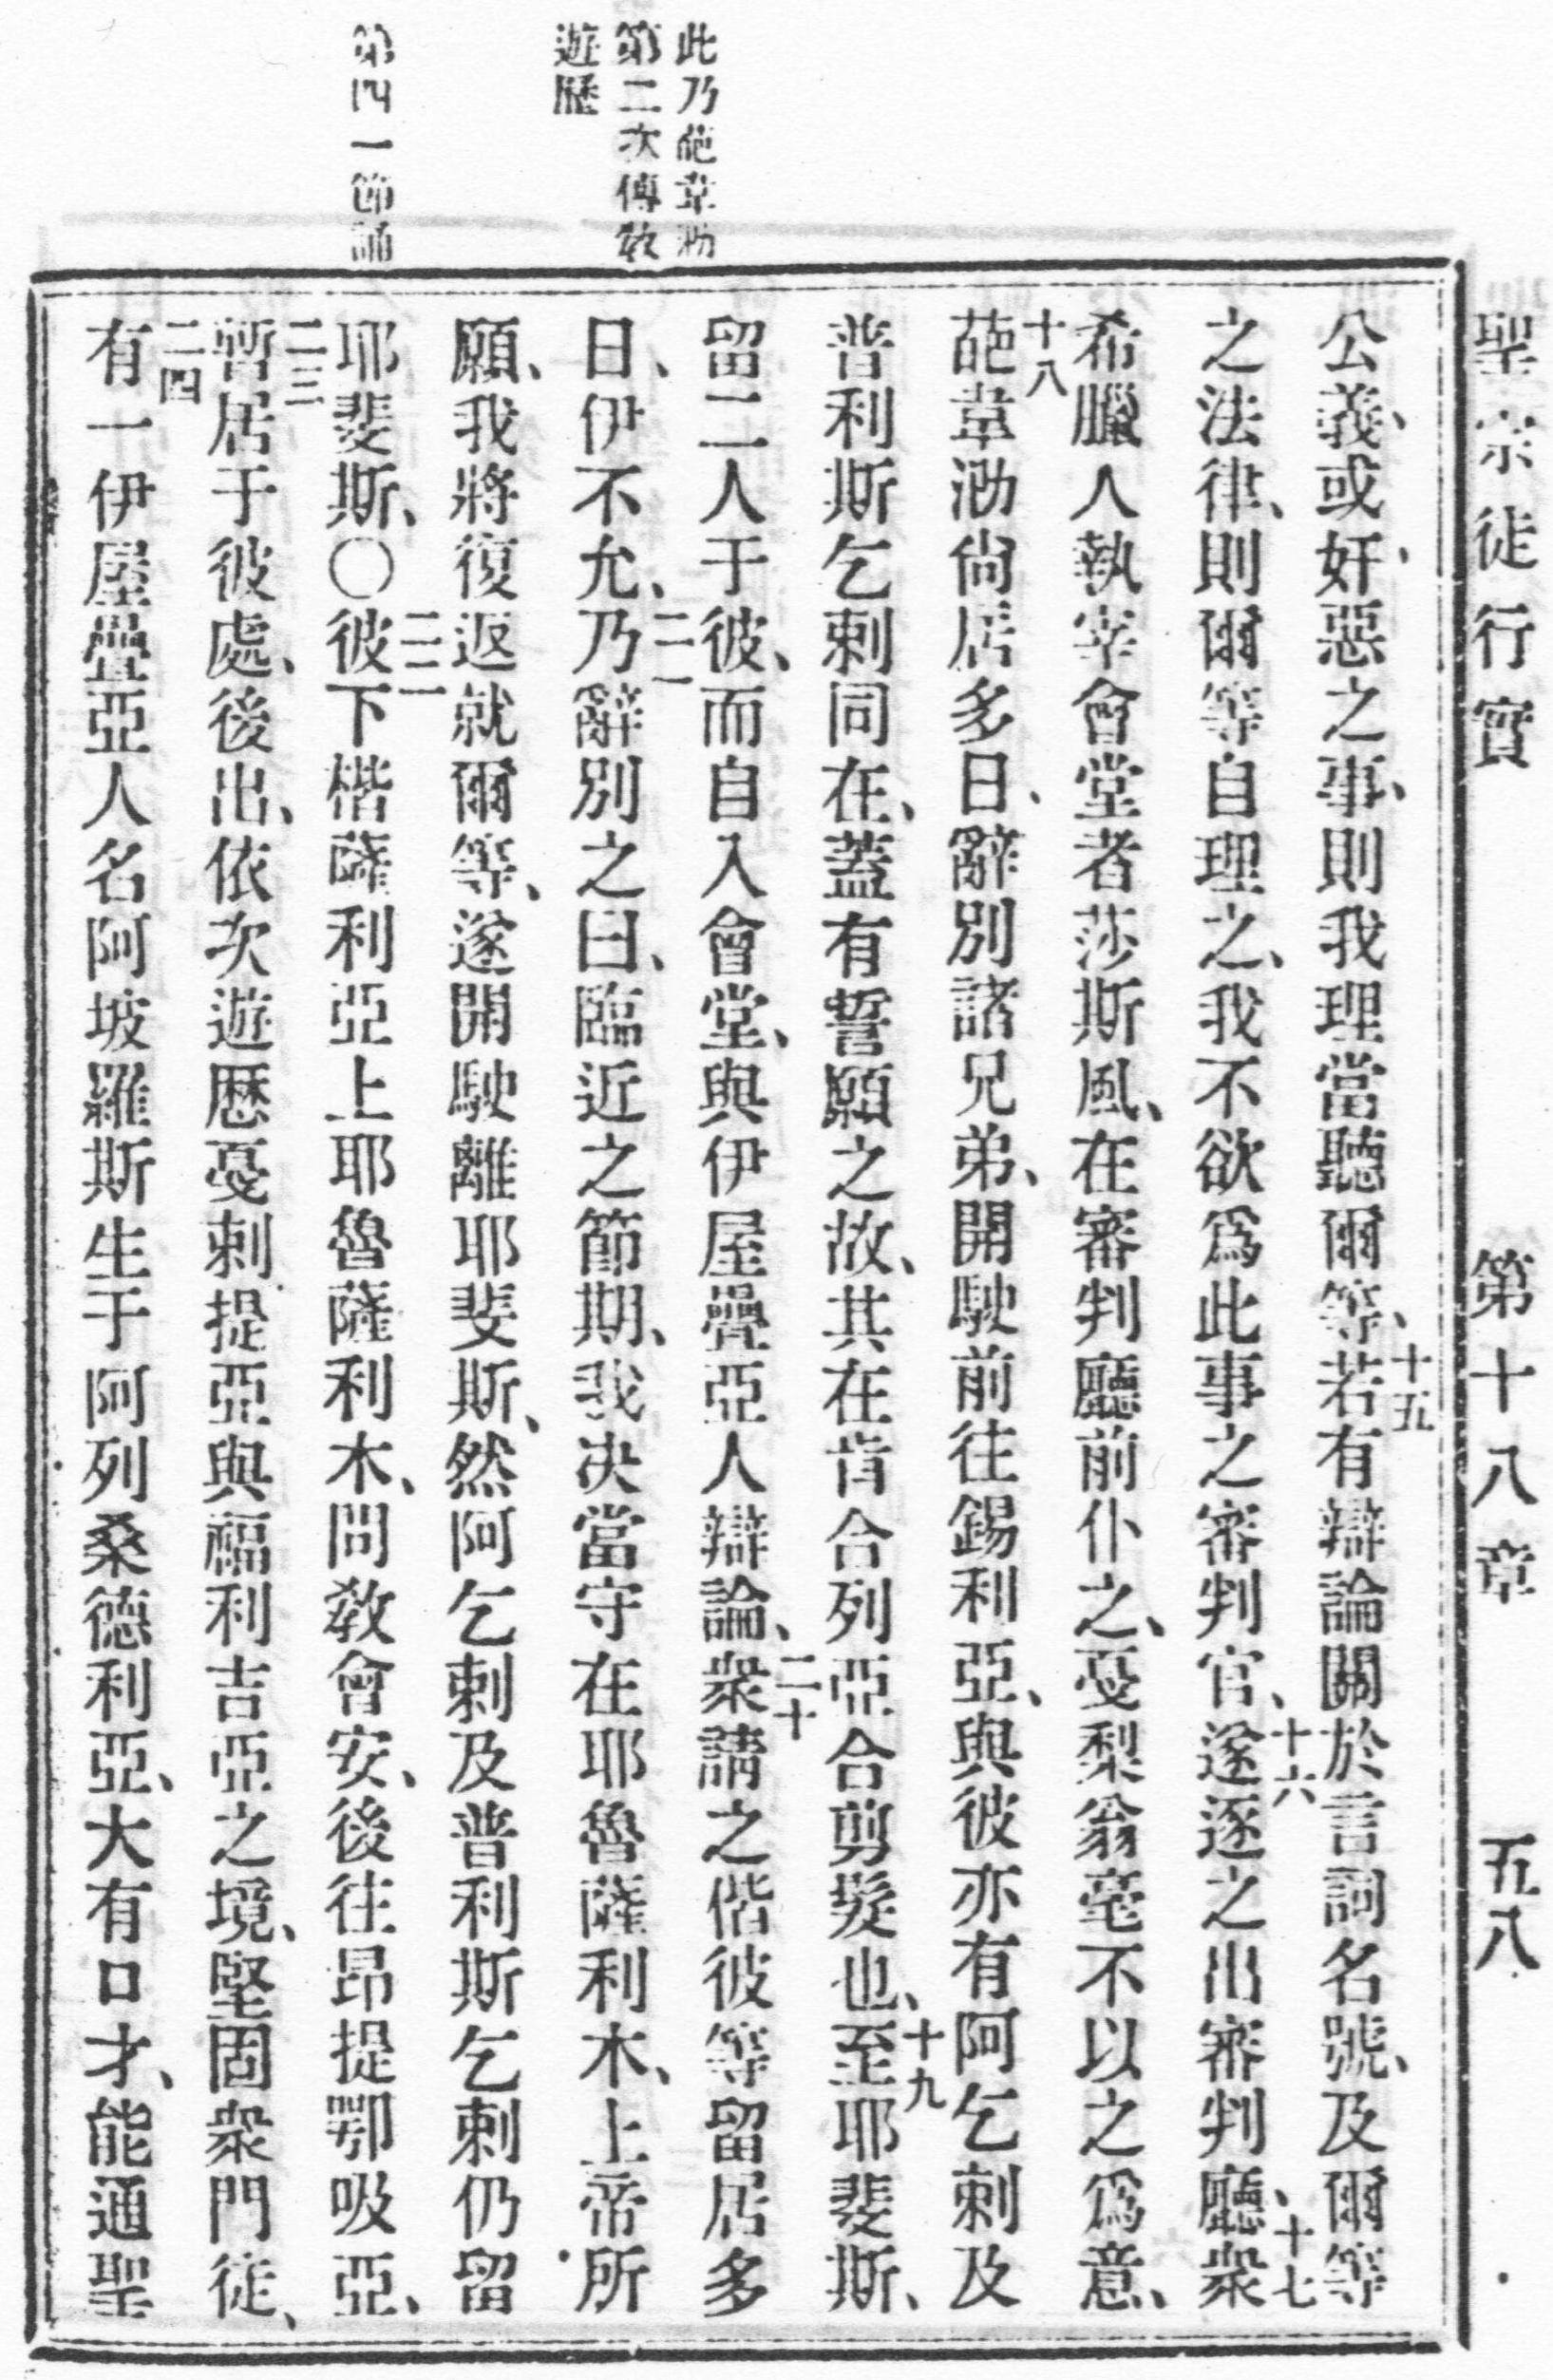 聖宗徒行實 第十八章 五八
公義、或奸惡之事、則我理當聽爾等、十五若有辯論關於言詞名號、及爾等
之法律、則爾等自理之、我不欲爲此事之審判官、十六遂逐之出審判廳、十七衆
希臘人執宰會堂者莎斯風、在審判廳前仆之、戞梨翁毫不以之爲意、
十八葩韋泐尙居多日、辭別諸兄弟、開駛前往錫利亞、與彼亦有阿乞剌及
普利斯乞剌同在、蓋有誓願之故、其在肯合列亞合剪髮也、十九至耶斐斯、
留二人于彼、而自入會堂、與伊屋疊亞人辯論、二十衆請之偕彼等留居多
日、伊不允、二一乃辭別之曰、臨近之節期、我决當守在耶魯薩利木、上帝所
願、我將復返就爾等、遂開駛離耶斐斯、然阿乞剌及普利斯乞剌仍留
耶斐斯、○二二彼下楷薩利亞上耶魯薩利木、問教會安、後往昂提鄂吸亞、
二三暫居于彼處、後出、依次遊歷戞剌提亞與福利吉亞之境、堅固衆門徒、
二四有一伊屋疊亞人名阿坡羅斯生于阿列桑德利亞、大有口才、能通聖
此乃葩韋泐
第二次傳教
遊歷
第四一節誦